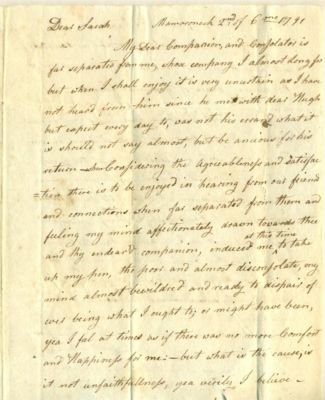 Mamaroneck 2nd of 6mo 1791
Dear Sarah
My Dear Companion, and Consolator is
far separated from me, whose company I almost long for
but when I shall enjoy it is very uncertain as I have
not heard from him since he met with dear Hugh
but expect every day to, was not his errand what it
is should not say almost, but be ancious for his
return Considering the Agreeableness and Satisfac
=tion there is to be enjoyed in hearing from our friend
and connections when far separated from them and
feeling my mind affectionately drawn towards thee
and thy endear'd companion, induced me this time to take
up my pen, tho poor and almost disconsolate, my
mind almost bewildred and ready to dispair of
ever being what I ought to, or might have been,
yea I feel at times as if there was no more Comfort
and Happiness for me:— but what is the cause, is
it not unfaithfullness, yea verily I believe—